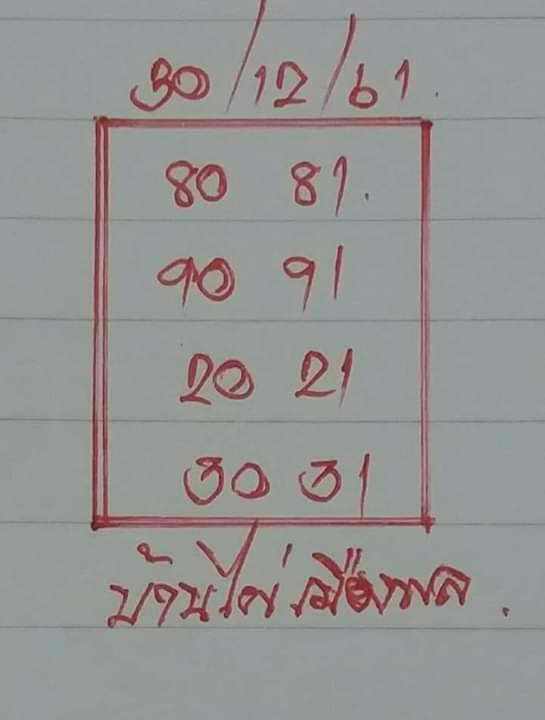 30/12/61.
80 81.
90 91
20 21
30 31
บ้านไผ่ เมืองพล.